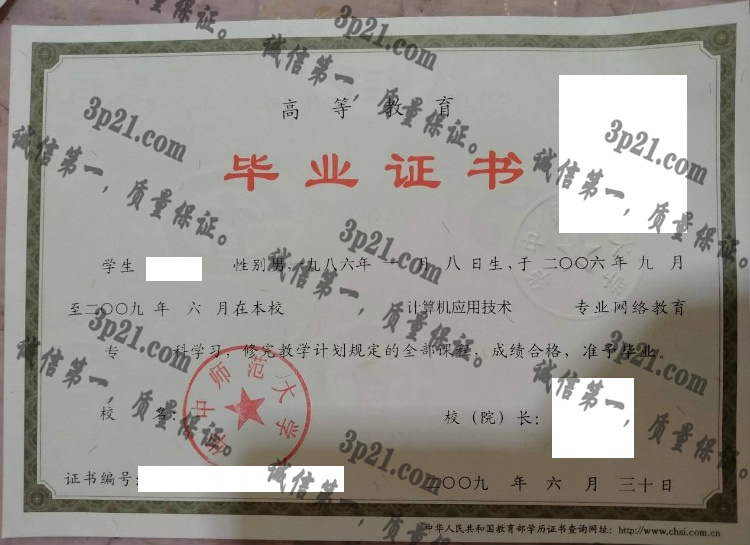 高等教育
毕业证书
学生 性别男，一九八六年一月八日生，于二〇〇六年九月
至二〇〇九年六月在本校 计算机应用技术 专业网络教育
专 科学习，修完教学计划规定的全部课程，成绩合格，准予毕业。
校 名：
华中师范大学
校（院）长：
证书编号：
二〇〇九年六月三十日
中华人民共和国教育部学历证书查询网址：http://www.chsi.com.cn
3p21.com
诚信第一，质量保证。
3p21.com
诚信第一，质量保证。
3p21.com
诚信第一，质量保证。
3p21.com
诚信第一，质量保证。
3p21.com
诚信第一，质量保证。
3p21.com
诚信第一，质量保证。
3p21.com
诚信第一，